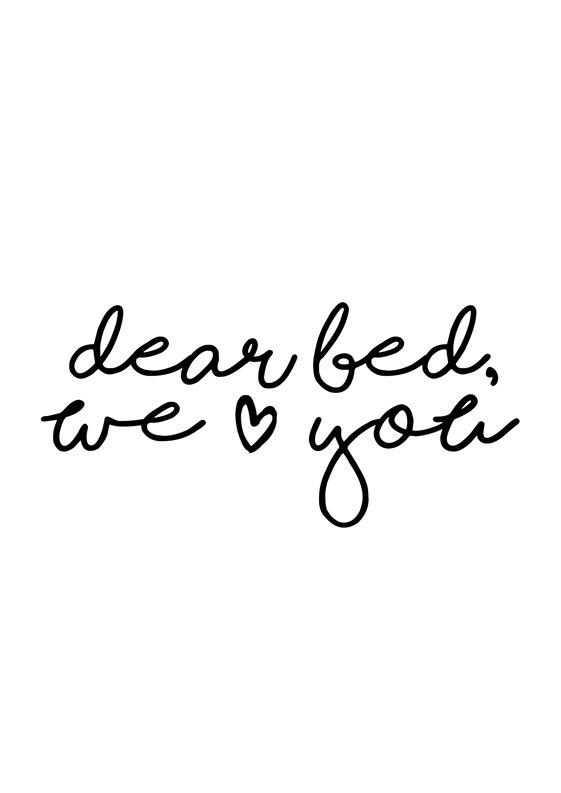 dear bed,
we ♡ you